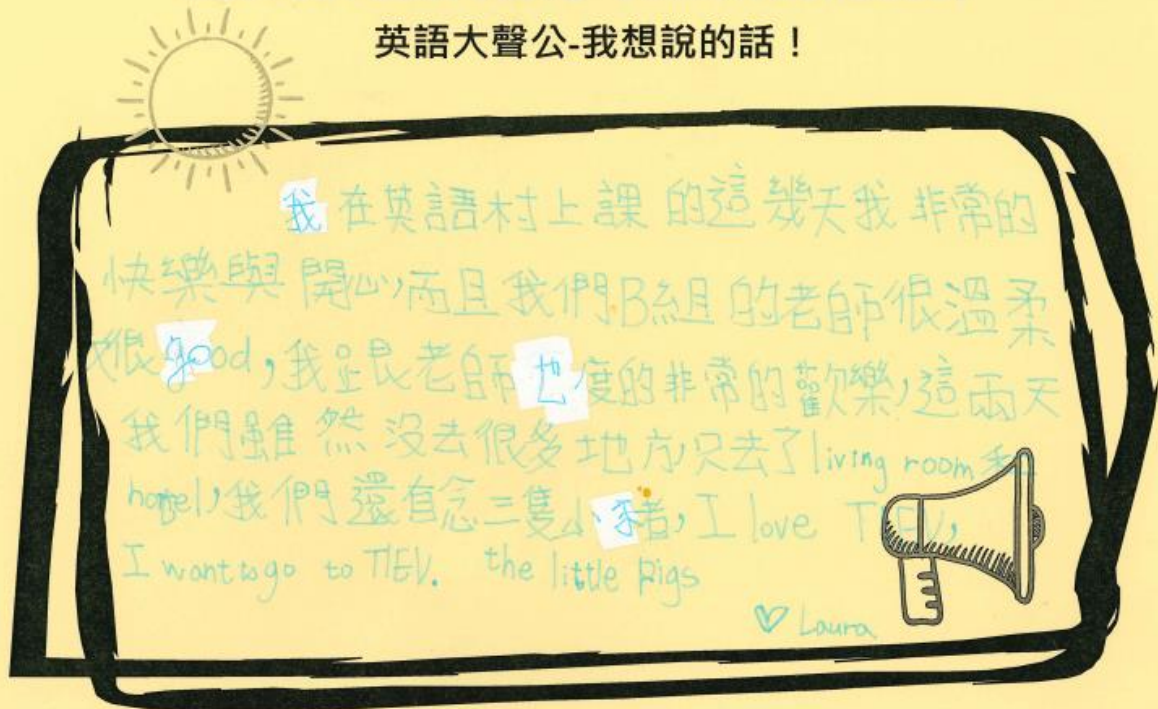 英語大聲公-我想說的話！
我在英語村上課的這幾天我非常的
快樂與開心,而且我們B組的老師很溫柔
很good,我跟老師也度的非常的歡樂,這兩天
我們雖然沒去很多地方只去了living room和
我們還有念三隻小豬, I love TIEV,
I want to go to TIEV. the little Pigs
♡ Laura